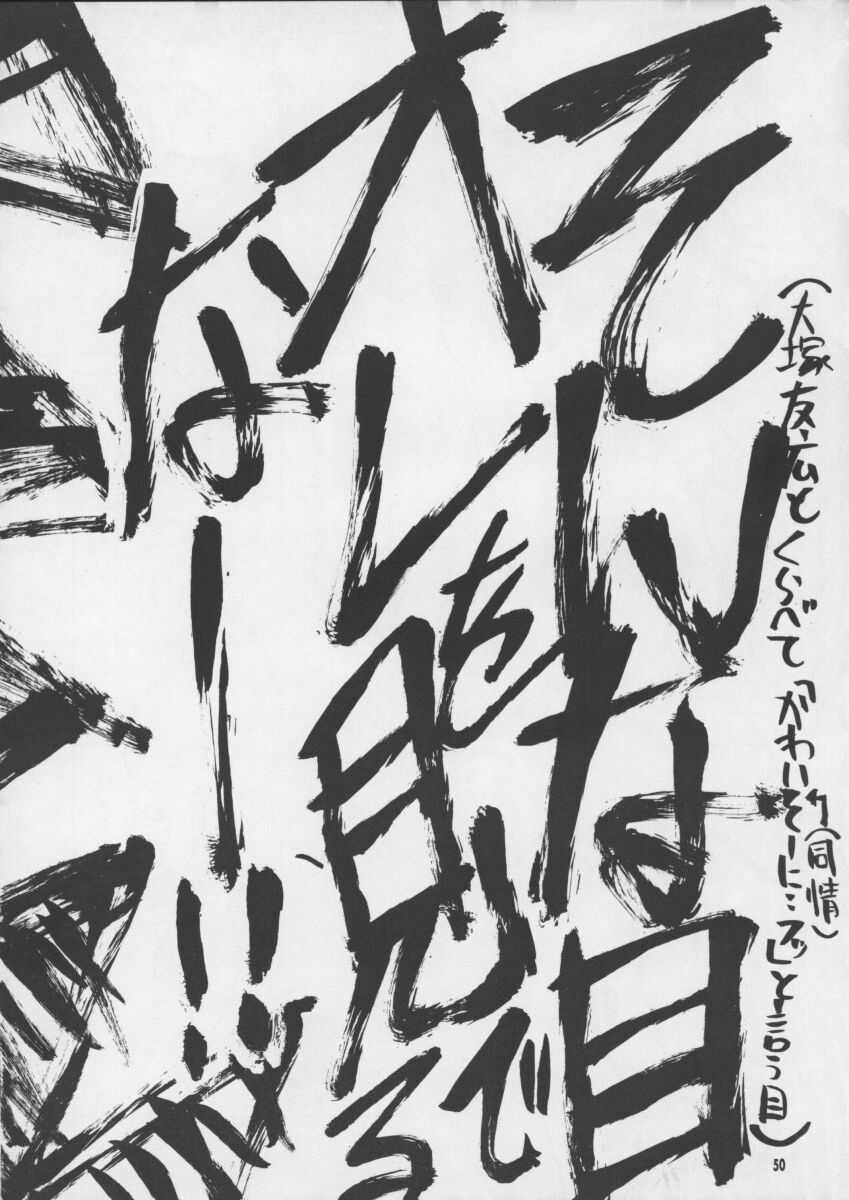 (大塚友広とくらべて「がわいそーに…ズッ」と言う目)
(同情)
そんな目で
オレを見る
なー!!